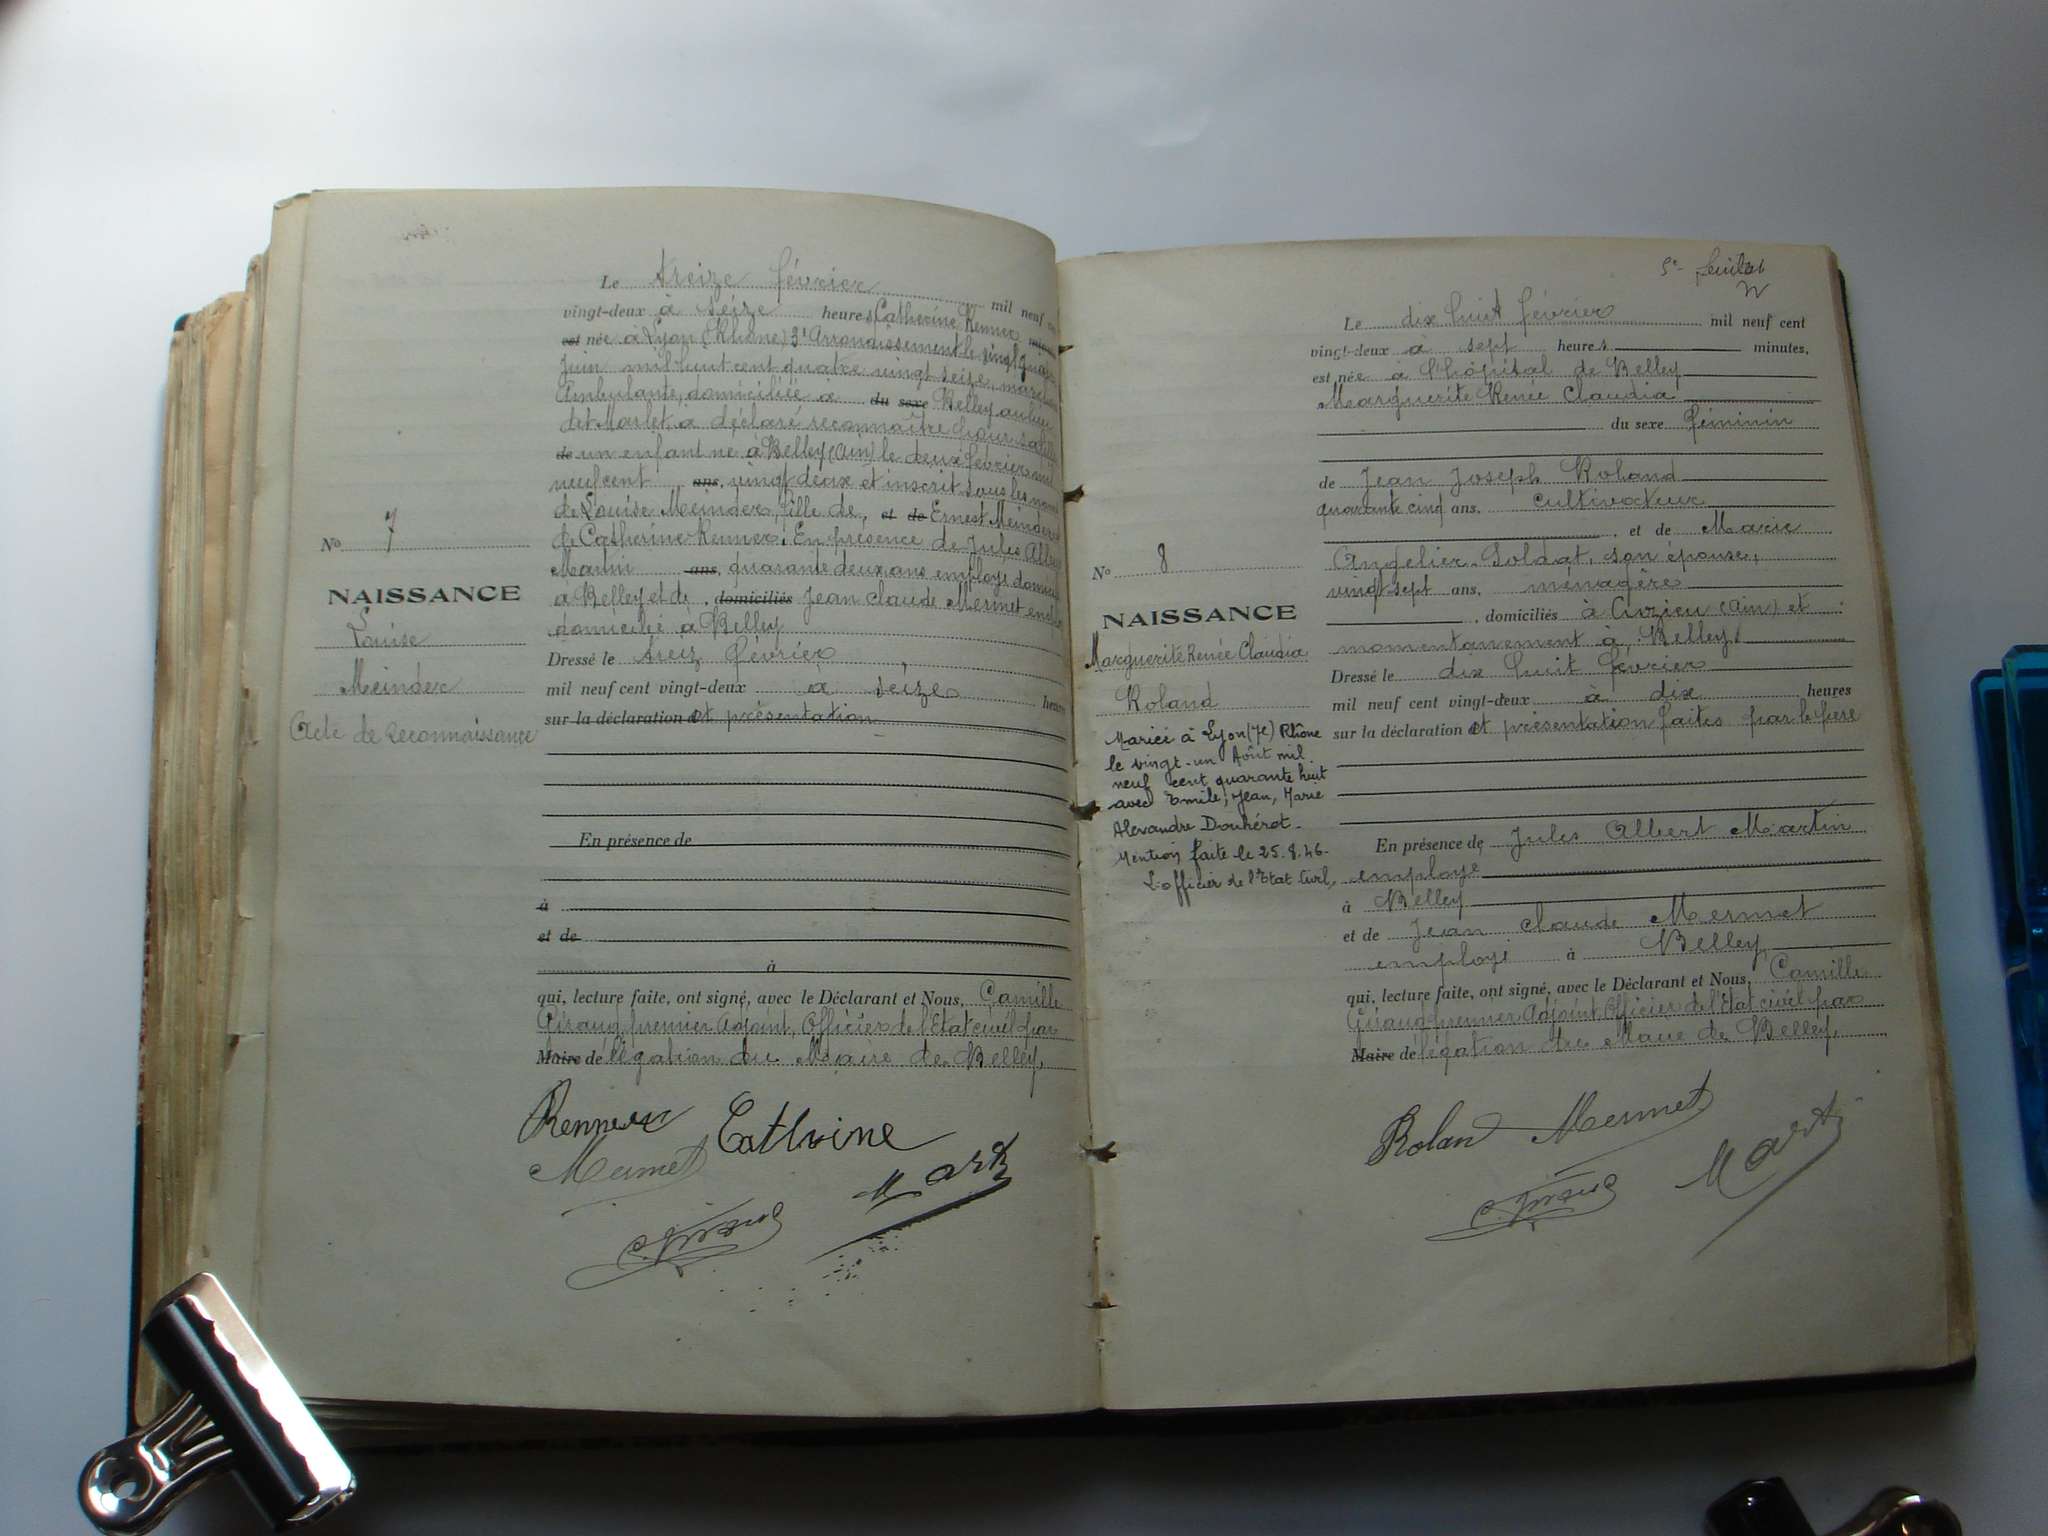 Le treize février mil neuf
vingt-deux à seize heures Catherine Renner
est née à Lyon (Rhône) 3e Arrondissement le vingt quatre
Juin mil huit cent quatre vingt seize, 
Ambulante, domiciliée à du sexe Belley au lieu
dit Marlet, a déclaré reconnaître pour sa fille
de un enfant né à Belley (Ain) le deux février mil
neuf cent ans, vingt deux et inscrit sous les noms
de Louise Meinder, fille de, et de Ernest Meinder
de Catherine Renner. En présence de Jules Albert
Martin ans, quarante deux ans employé
à Belley et de , domiciliés Jean Claude Mermet
domicilié à Belley
Dressé le treiz février
mil neuf cent vingt-deux à seize heures
sur la déclaration et présentation
En présence de
à
et de
à
qui, lecture faite, ont signé, avec le Déclarant et Nous, Camille
Giraud premier Adjoint, Officier de l'Etat civil par
Maire de légation du Maire de Belley.
Renner Catherine
Mermet
C. Giraud
No 7
NAISSANCE
Louise
Meinder
Acte de Reconnaissance
5e feuillet
Le dix huit février mil neuf cent
vingt-deux à sept heures minutes,
est née à l'hôpital de Belley
Marguerite Renée Claudia
du sexe féminin
de Jean Joseph Roland
quarante cinq ans, cultivateur
, et de Marie
Angelier-Soldat, son épouse,
vingt sept ans, ménagère
, domiciliés à (Ain) et
momentanement à Belley
Dressé le dix huit février
mil neuf cent vingt-deux à dix heures
sur la déclaration et présentation faites par le père
En présence de Jules Albert Martin
employé
à Belley
et de Jean Claude Mermet
employé à Belley
qui, lecture faite, ont signé, avec le Déclarant et Nous, Camille
Giraud premier Adjoint, Officier de l'Etat civil par
Maire de légation du Maire de Belley.
Roland Mermet
C. Giraud
No 8
NAISSANCE
Marguerite Renée Claudia
Roland
Mariée à Lyon (7e) Rhône
le vingt-un Août mil
neuf cent quarante huit
avec Emile, Jean, Marie
Alexandre
Mention faite le 25.8.46.
L'officier de l'Etat Civil,